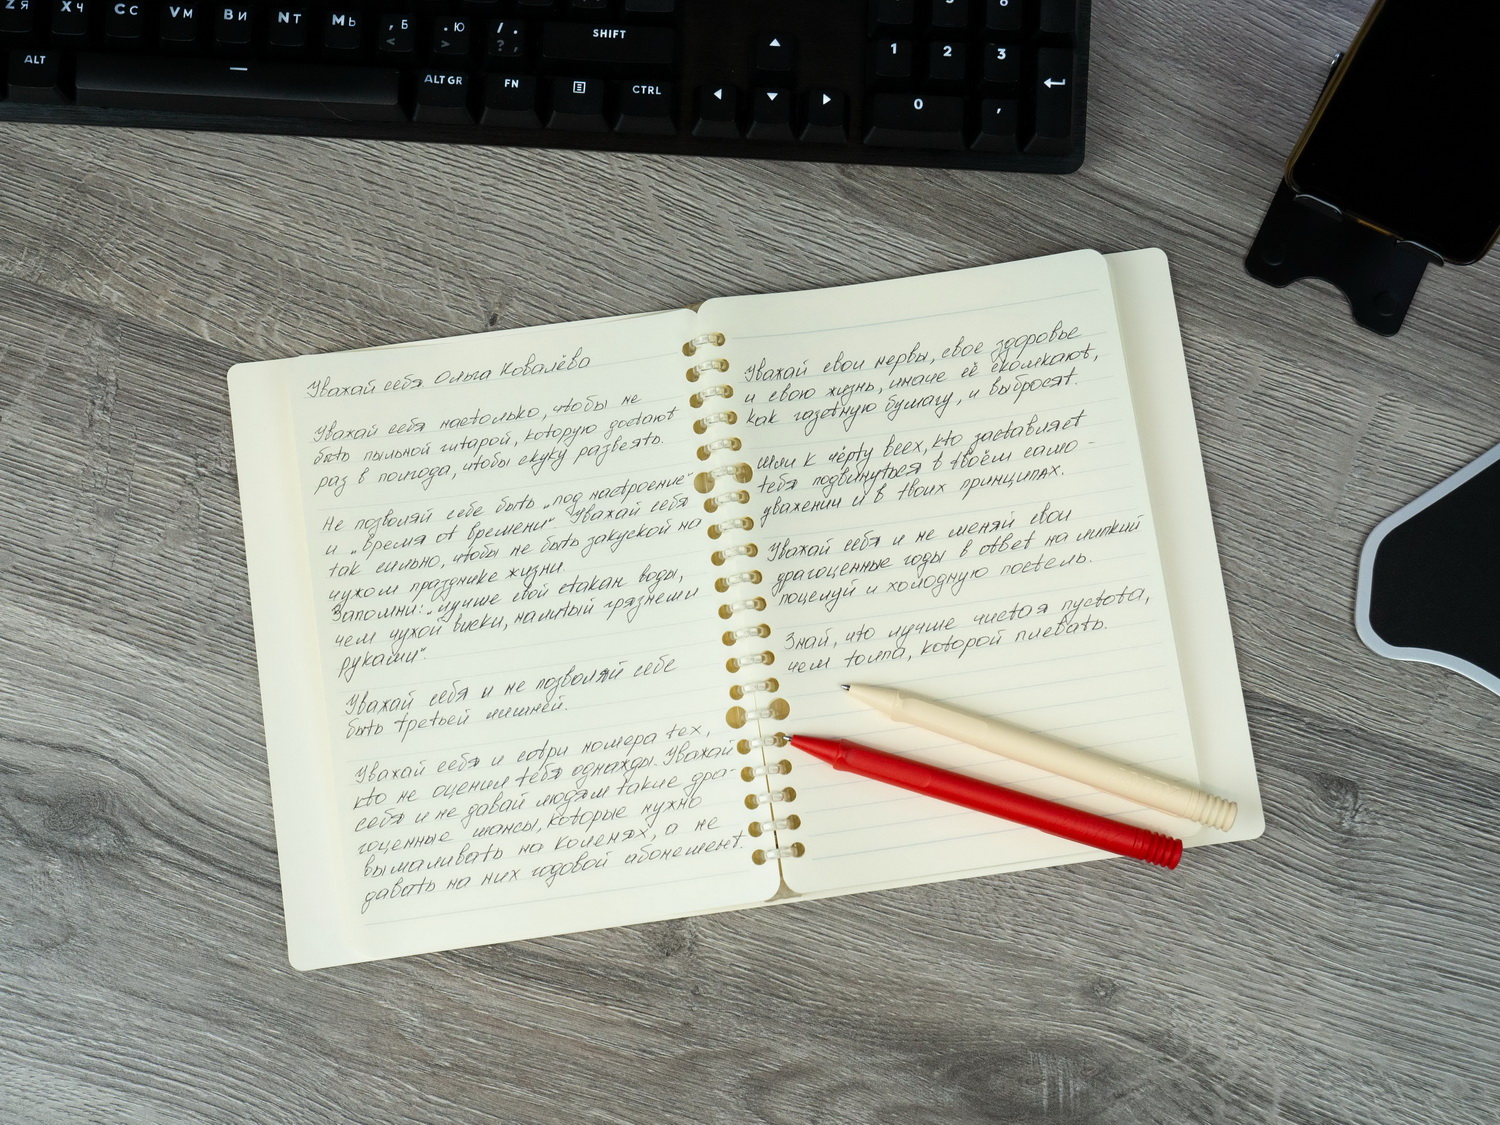 Z Я
X Ч
C С
V М
B И
N Т
M Ь
, Б
<
. Ю
>
/ .
? ,
SHIFT
1
2
3
ALT
ALT GR
FN
CTRL
0
,
Уважай себя Ольга Ковалёва
Уважай себя настолько, чтобы не
быть пыльной гитарой, которую достают
раз в полгода, чтобы скуку развеять.
Не позволяй себе быть „под настроение"
и „время от времени" Уважай себя
так сильно, чтобы не быть закуской на
чужом празднике жизни.
Запомни: „лучше свой стакан воды,
чем чужой виски, налитый грязными
руками".
Уважай себя и не позволяй себе
быть третьей лишней.
Уважай себя и сотри номера тех,
кто не оценил тебя однажды. Уважай
себя и не давай людям такие дра-
гоценные шансы, которые нужно
вымаливать на коленях, а не
давать на них годовой абонемент.
Уважай свои нервы, свое здоровье
и свою жизнь, иначе её скомкают,
как газетную бумагу, и выбросят.
Шли к чёрту всех, кто заставляет
тебя подвинуться в твоём само-
уважении и в твоих принципах.
Уважай себя и не меняй свои
драгоценные годы в ответ на липкий
поцелуй и холодную постель.
Знай, что лучше чистая пустота,
чем толпа, которой плевать.